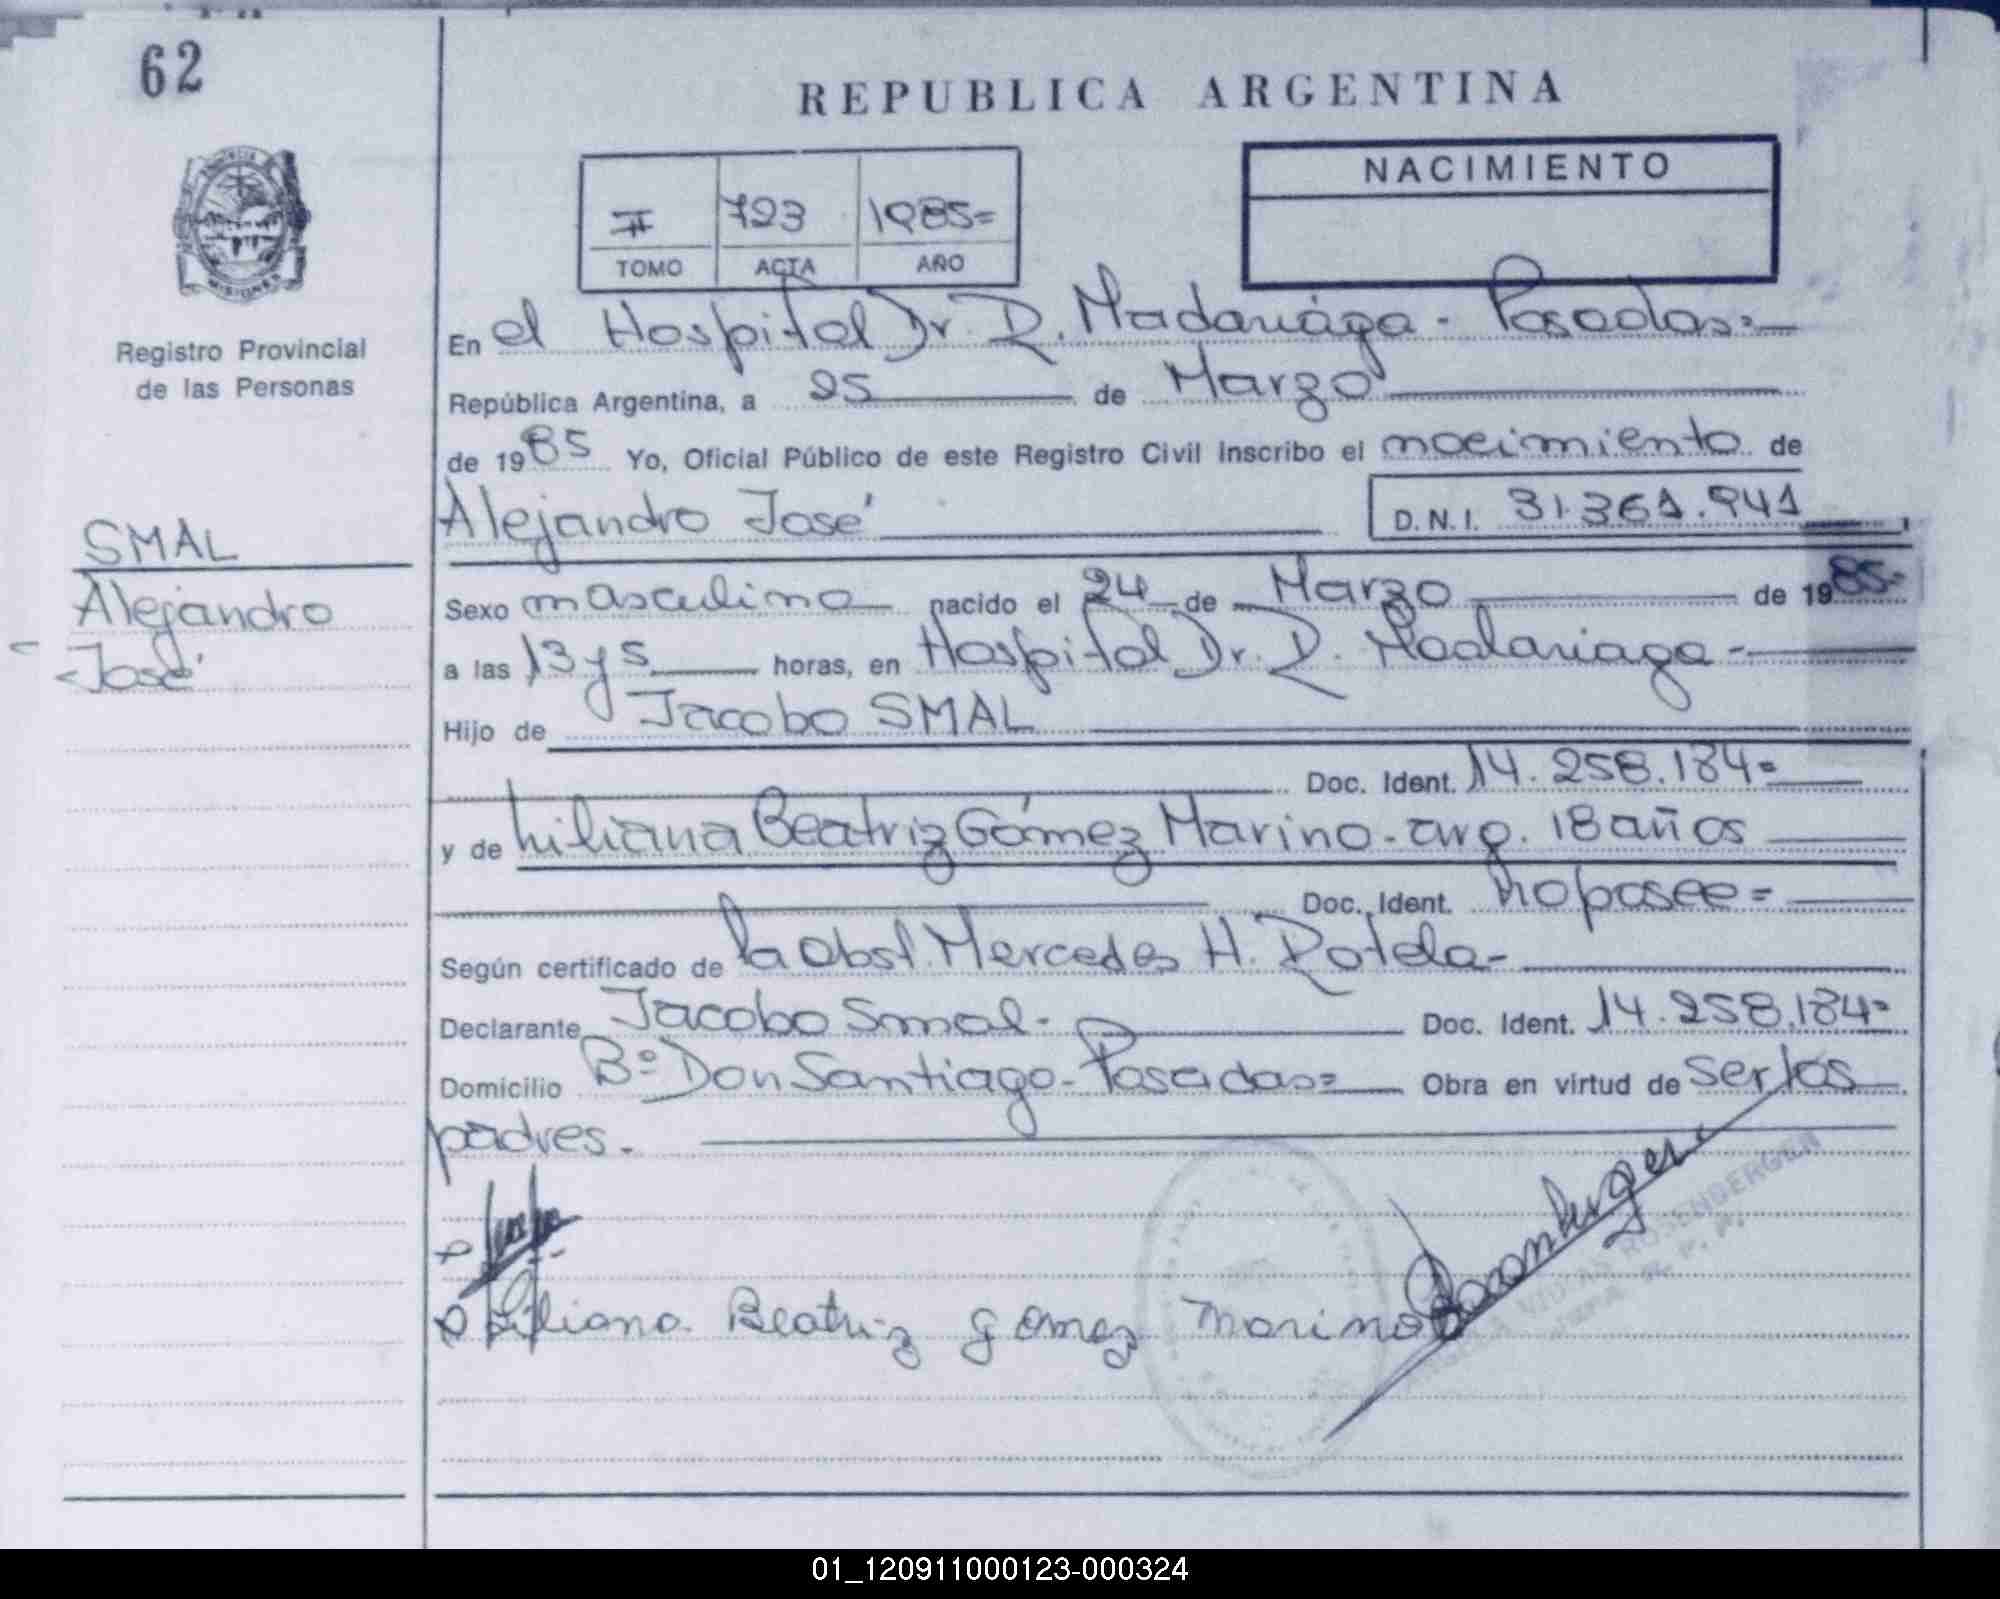 62
REPUBLICA ARGENTINA
NACIMIENTO
II 723 1985=
TOMO ACTA AÑO
MISIONES
Registro Provincial
de las Personas
En el Hospital Dr. R. Madariaga - Posadas=
República Argentina, a 25 de Marzo
de 1985 Yo, Oficial Público de este Registro Civil Inscribo el nacimiento de
Alejandro José D.N.I. 31.361.941
SMAL
Alejandro
José
Sexo masculino nacido el 24 de Marzo de 1985-
a las 13 y 5 horas, en Hospital Dr. R. Madariaga-
Hijo de Jacobo SMAL
Doc. Ident. 14.258.184=
y de Liliana Beatriz Gómez Marino - arg. 18 años
Doc. Ident. no posee=
Según certificado de la Obst. Mercedes H. Rotela-
Declarante Jacobo Smal- Doc. Ident. 14.258.184=
Domicilio Bº Don Santiago - Posadas= Obra en virtud de ser los
padres.
Liliana Beatriz gomez marino
ROSENBERGER
01_120911000123-000324